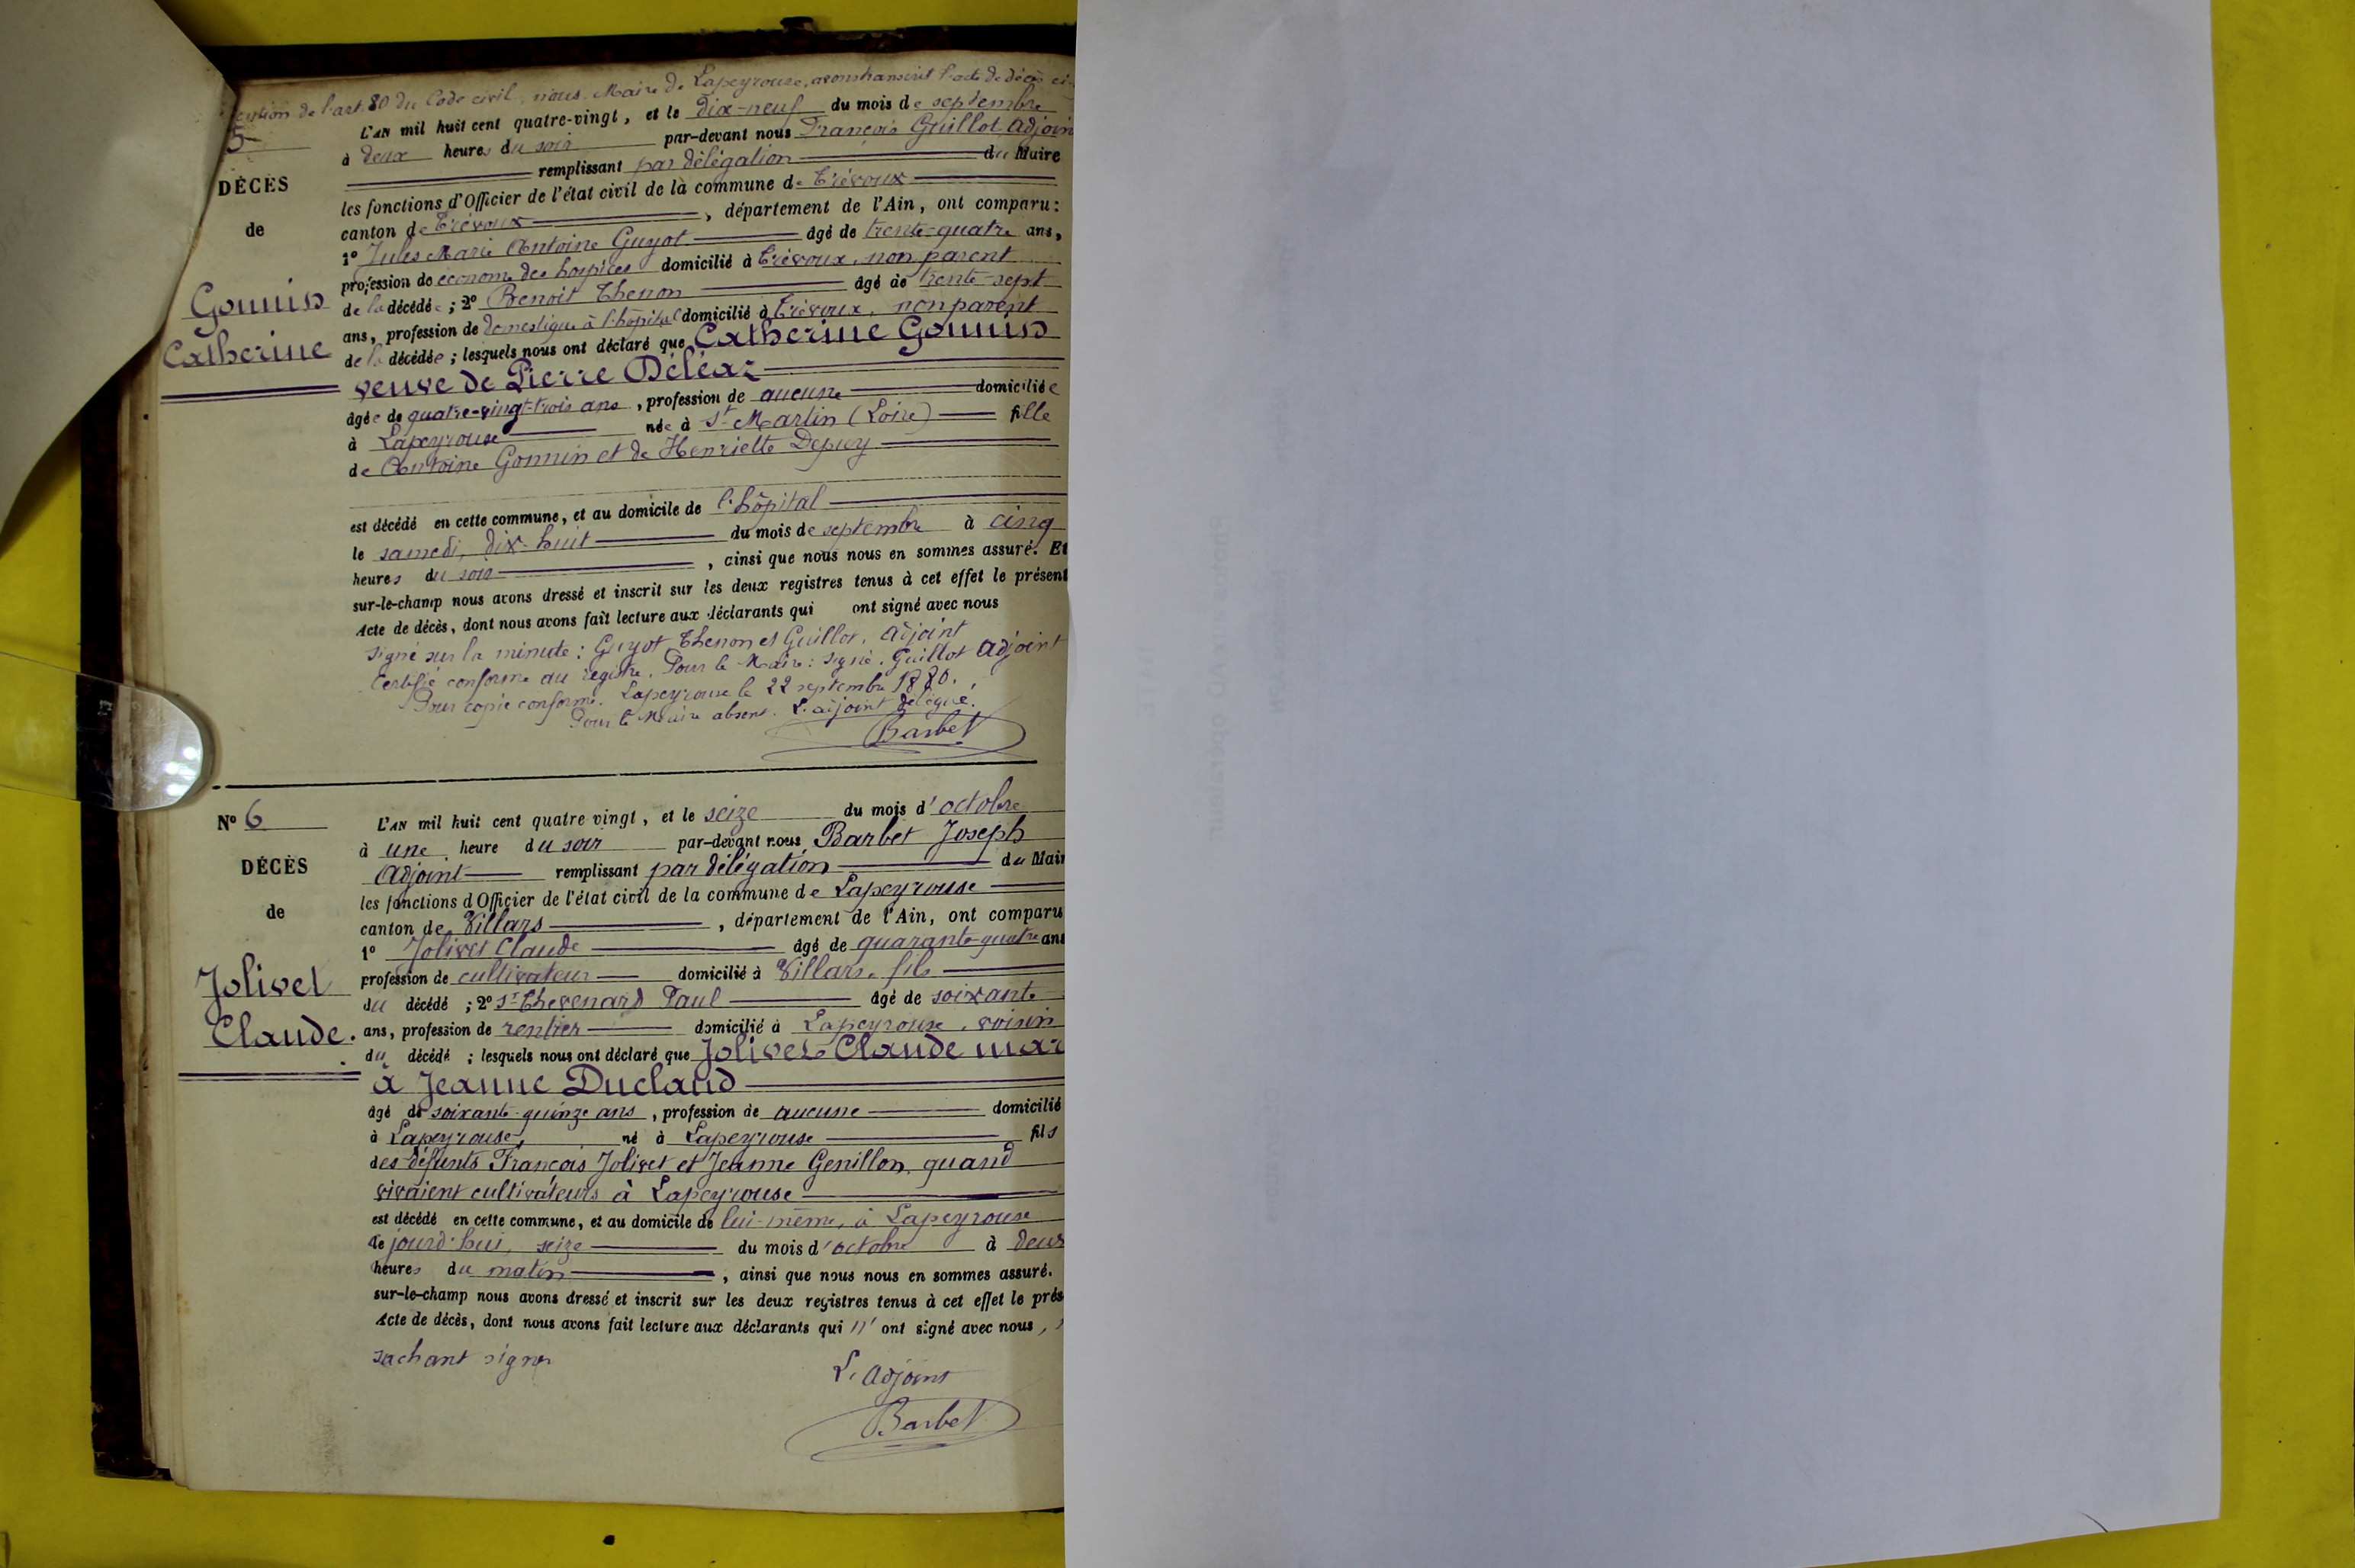 de l'art 80 du Code civil, nous, Maire de Lapeyrouse, avons transcrit l'acte de décès ci-
5
L'AN mil huit cent quatre-vingt, et le dix-neuf du mois de septembre
à deux heures du soir par-devant nous François Guillot, Adjoin
remplissant par délégation du Maire
DÉCÈS
les fonctions d'Officier de l'état civil de la commune de Trévoux
de
canton de Trévoux, département de l'Ain, ont comparu:
1° Jules Marie Antoine Guyot âgé de trente-quatre ans,
profession de économe des hospices domicilié à Trévoux, non parent
Gonnin
de la décédée; 2° Benoit Thenon âgé de trente-sept
ans, profession de domestique à l'hôpital domicilié à Trévoux, non parent
Catherine
de la décédée; lesquels nous ont déclaré que Catherine Gonnin
veuve de Pierre Déléaz
âgée de quatre-vingt-trois ans, profession de aucune domiciliée
à Lapeyrouse née à St Martin (Loire) fille
de Antoine Gonnin et de Henriette Depuy
est décédé en cette commune, et au domicile de l'hôpital
le samedi, dix-huit du mois de septembre à cinq
heures du soir, ainsi que nous nous en sommes assuré. Et
sur-le-champ nous avons dressé et inscrit sur les deux registres tenus à cet effet le présent
Acte de décès, dont nous avons fait lecture aux déclarants qui ont signé avec nous
Signé sur la minute: Guyot, Thenon et Guillot, adjoint
Certifié conforme au registre. Pour le Maire: signé, Guillot adjoint
Pour copie conforme. Lapeyrouse le 22 septembre 1880.
Pour le Maire absent. L'adjoint délégué.
Barbet
N° 6
L'AN mil huit cent quatre vingt, et le seize du mois d'octobre
à une heure du soir par-devant nous Barbet Joseph
DÉCÈS
Adjoint remplissant par délégation du Mair
les fonctions d'Officier de l'état civil de la commune de Lapeyrouse
de
canton de Villars, département de l'Ain, ont comparu
1° Jolivet Claude âgé de quarante-quatre ans
profession de cultivateur domicilié à Villars, fils
Jolivet
du décédé; 2° St-Thevenard Paul âgé de soixante
Claude.
ans, profession de rentier domicilié à Lapeyrouse, voisin
du décédé; lesquels nous ont déclaré que Jolivet Claude mar
à Jeanne Ducland
âgé de soixante-quinze ans, profession de aucune domicilié
à Lapeyrouse, né à Lapeyrouse fils
des défunts François Jolivet et Jeanne Genillon, quand
vivaient cultivateurs à Lapeyrouse
est décédé en cette commune, et au domicile de lui-même, à Lapeyrouse
le jourd'hui, seize du mois d'octobre à deux
heures du matin, ainsi que nous nous en sommes assuré.
sur-le-champ nous avons dressé et inscrit sur les deux registres tenus à cet effet le prés
Acte de décès, dont nous avons fait lecture aux déclarants qui n'ont signé avec nous,
sachant signer
L'adjoint
Barbet